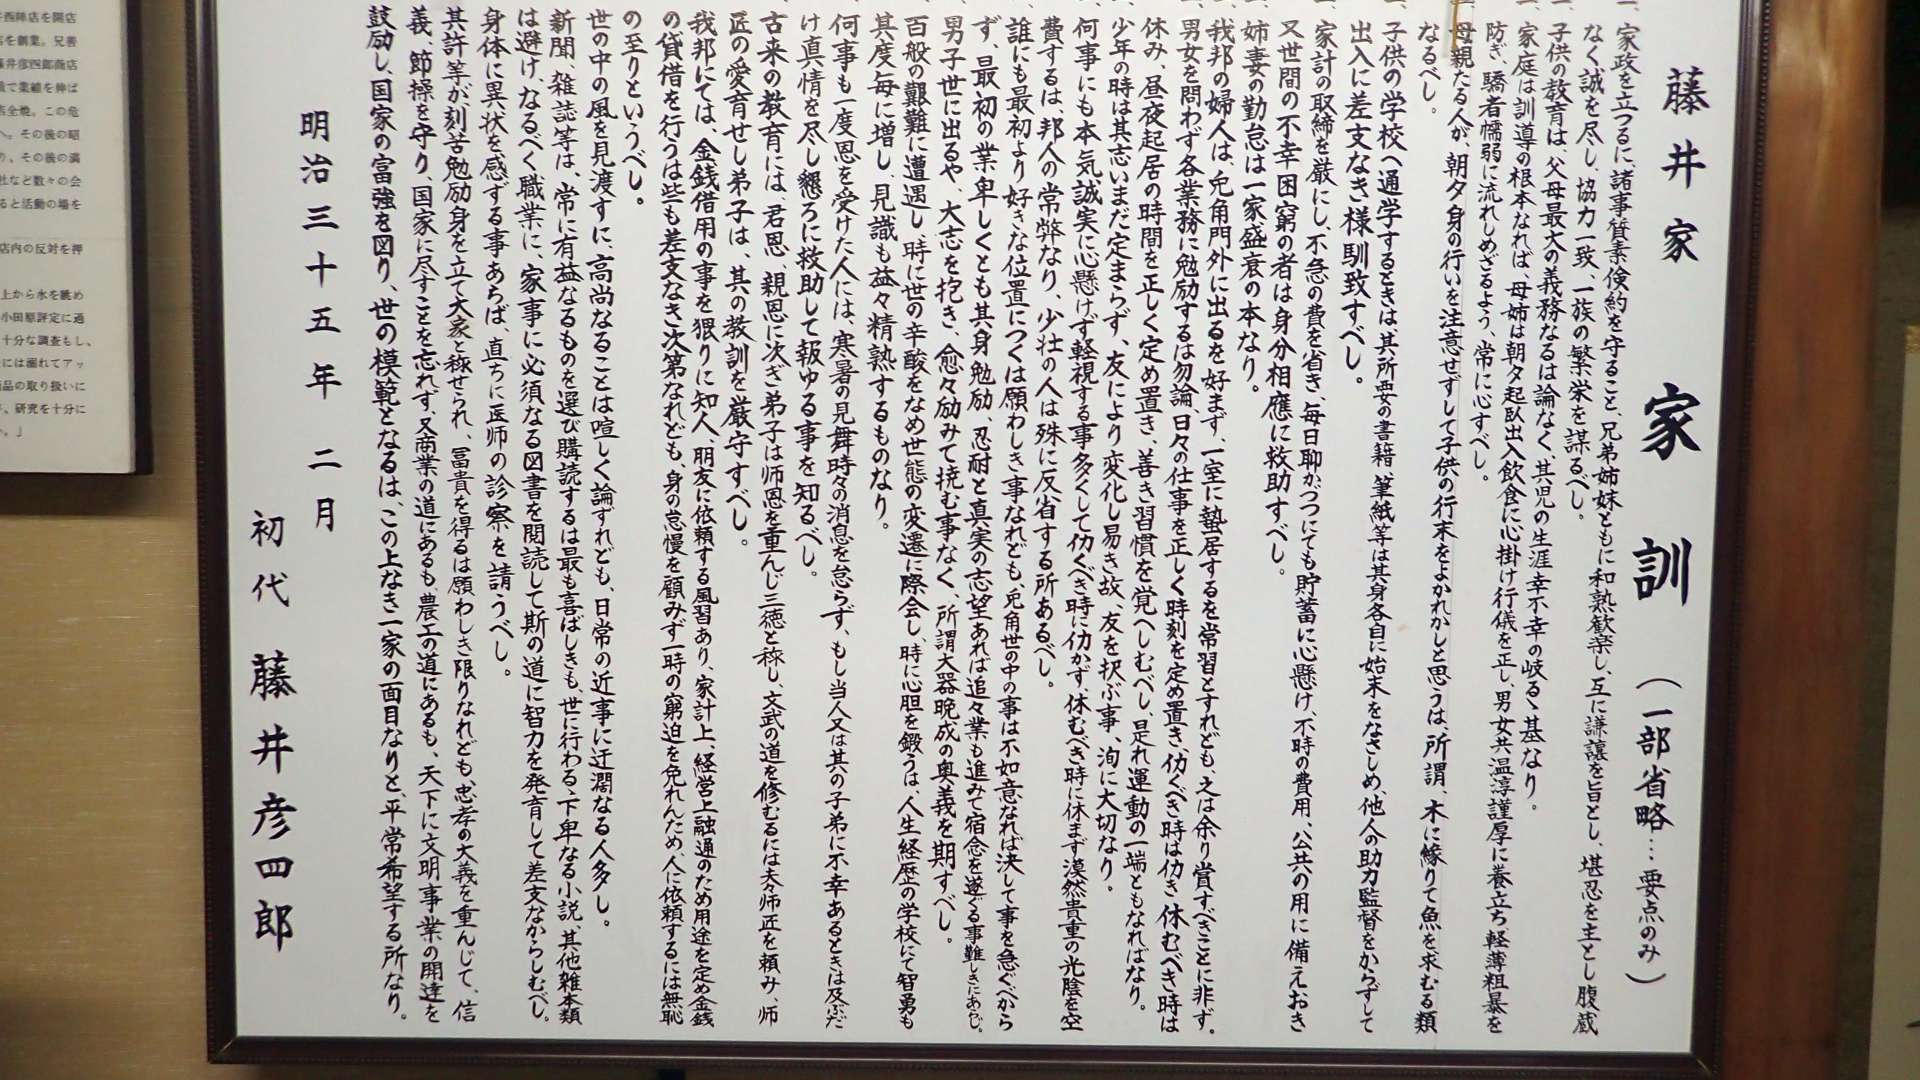 藤井家 家訓 (一部省略…要点のみ)
一、家政を立つるに、諸事質素倹約を守ること、兄弟姉妹ともに和熟歓楽し、互に謙譲を旨とし、堪忍を主とし腹蔵
なく誠を尽し、協力一致、一族の繁栄を謀るべし。
一、子供の教育は、父母最大の義務なるは論なく、其児の生涯幸不幸の岐るゝ基なり。
一、家庭は訓導の根本なれば、母姉は朝夕起臥出入飲食に心掛け行儀を正し、男女共温淳謹厚に養立ち軽薄粗暴を
防ぎ、驕奢懦弱に流れしめざるよう、常に心すべし。
一、母親たる人が、朝夕身の行いを注意せずして子供の行末をよかれかしと思うは、所謂、木に縁りて魚を求むる類
なるべし。
一、子供の学校へ通学するときは、其所要の書籍、筆紙等は其身各自に始末をなさしめ、他人の助力監督をからずして
出入に差支なき様馴致すべし。
一、家計の取締を厳にし、不急の費を省き、毎日聊かづつにても貯蓄に心懸け、不時の費用、公共の用に備えおき
又世間の不幸困窮の者は身分相應に救助すべし。
一、姉妻の勤怠は一家盛衰の本なり。
一、我邦の婦人は、兎角門外に出るを好まず、一室に蟄居するを常習とすれども、之は余り賞すべきことに非ず。
一、男女を問わず各業務に勉励するは勿論、日々の仕事を正しく時刻を定め置き、仂くべき時は仂き休むべき時は
休み、昼夜起居の時間を正しく定め置き、善き習慣を覚へしむべし、是れ運動の一端ともなればなり。
一、少年の時は其志いまだ定まらず、友により変化し易き故、友を択ぶ事、洵に大切なり。
一、何事にも本気誠実に心懸けず軽視する事多くして仂くべき時に仂かず、休むべき時に休まず漠然貴重の光陰を空
費するは、邦人の常弊なり、少壮の人は殊に反省する所あるべし。
一、誰にも最初より好きな位置につくは願わしき事なれども、兎角世の中の事は不如意なれば決して事を急ぐべから
ず、最初の業卑しくとも其身勉励、忍耐と真実の志望あれば追々業も進みて宿念を遂ぐる事難しきにあらじ。
一、男子世に出るや、大志を抱き、愈々励みて撓む事なく、所謂大器晩成の奥義を期すべし。
一、百般の艱難に遭遇し、時に世の辛酸をなめ世態の変遷に際会し、時に心胆を鍛うは、人生経歴の学校にて智勇も
其度毎に増し、見識も益々精熟するものなり。
一、何事も一度恩を受けた人には、寒暑の見舞時々の消息を怠らず、もし当人又は其の子弟に不幸あるときは及ぶだ
け真情を尽し懇ろに救助して報ゆる事を知るべし。
一、古来の教育には、君恩、親恩に次ぎ弟子は師恩を重んじ三徳と称し、文武の道を修むるには夫々師匠を頼み、師
匠の愛育せし弟子は、其の教訓を厳守すべし。
一、我邦にては、金銭借用の事を猥りに知人、朋友に依頼する風習あり、家計上、経営上融通のため用途を定め金銭
の貸借を行うは些も差支なき次第なれども、身の怠慢を顧みず一時の窮迫を免れんため、人に依頼するには無恥
の至りというべし。
世の中の風を見渡すに、高尚なることは喧しく論ずれども、日常の近事に迂濶なる人多し。
新聞、雑誌等は、常に有益なるものを選び購読するは最も喜ばしきも、世に行わる下卑なる小説、其他雑本類
は避け、なるべく職業に、家事に必須なる図書を閲読して斯の道に智力を発育して差支なからしむべし。
身体に異状を感ずる事あらば、直ちに医師の診察を請うべし。
其許等が刻苦勉励身を立て大家と称せられ、冨貴を得るは願わしき限りなれども、忠孝の大義を重んじて、信
義、節操を守り、国家に尽すことを忘れず、又商業の道にあるも、農工の道にあるも、天下に文明事業の開達を
鼓励し、国家の富強を図り、世の模範となるは、この上なき一家の面目なりと、平常希望する所なり。
明治三十五年 二月
初代 藤井彦四郎